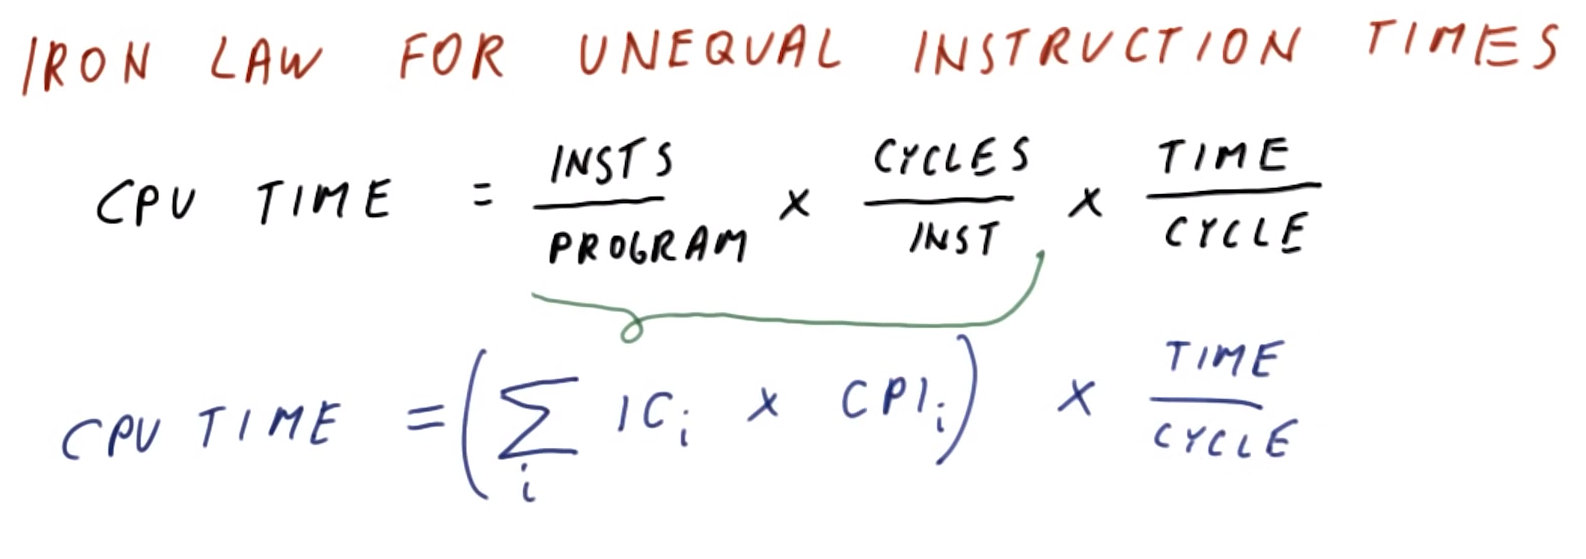 IRON LAW FOR UNEQUAL INSTRUCTION TIMES
CPU TIME = INSTS/PROGRAM × CYCLES/INST × TIME/CYCLE
CPU TIME = (∑i ICi × CPIi) × TIME/CYCLE